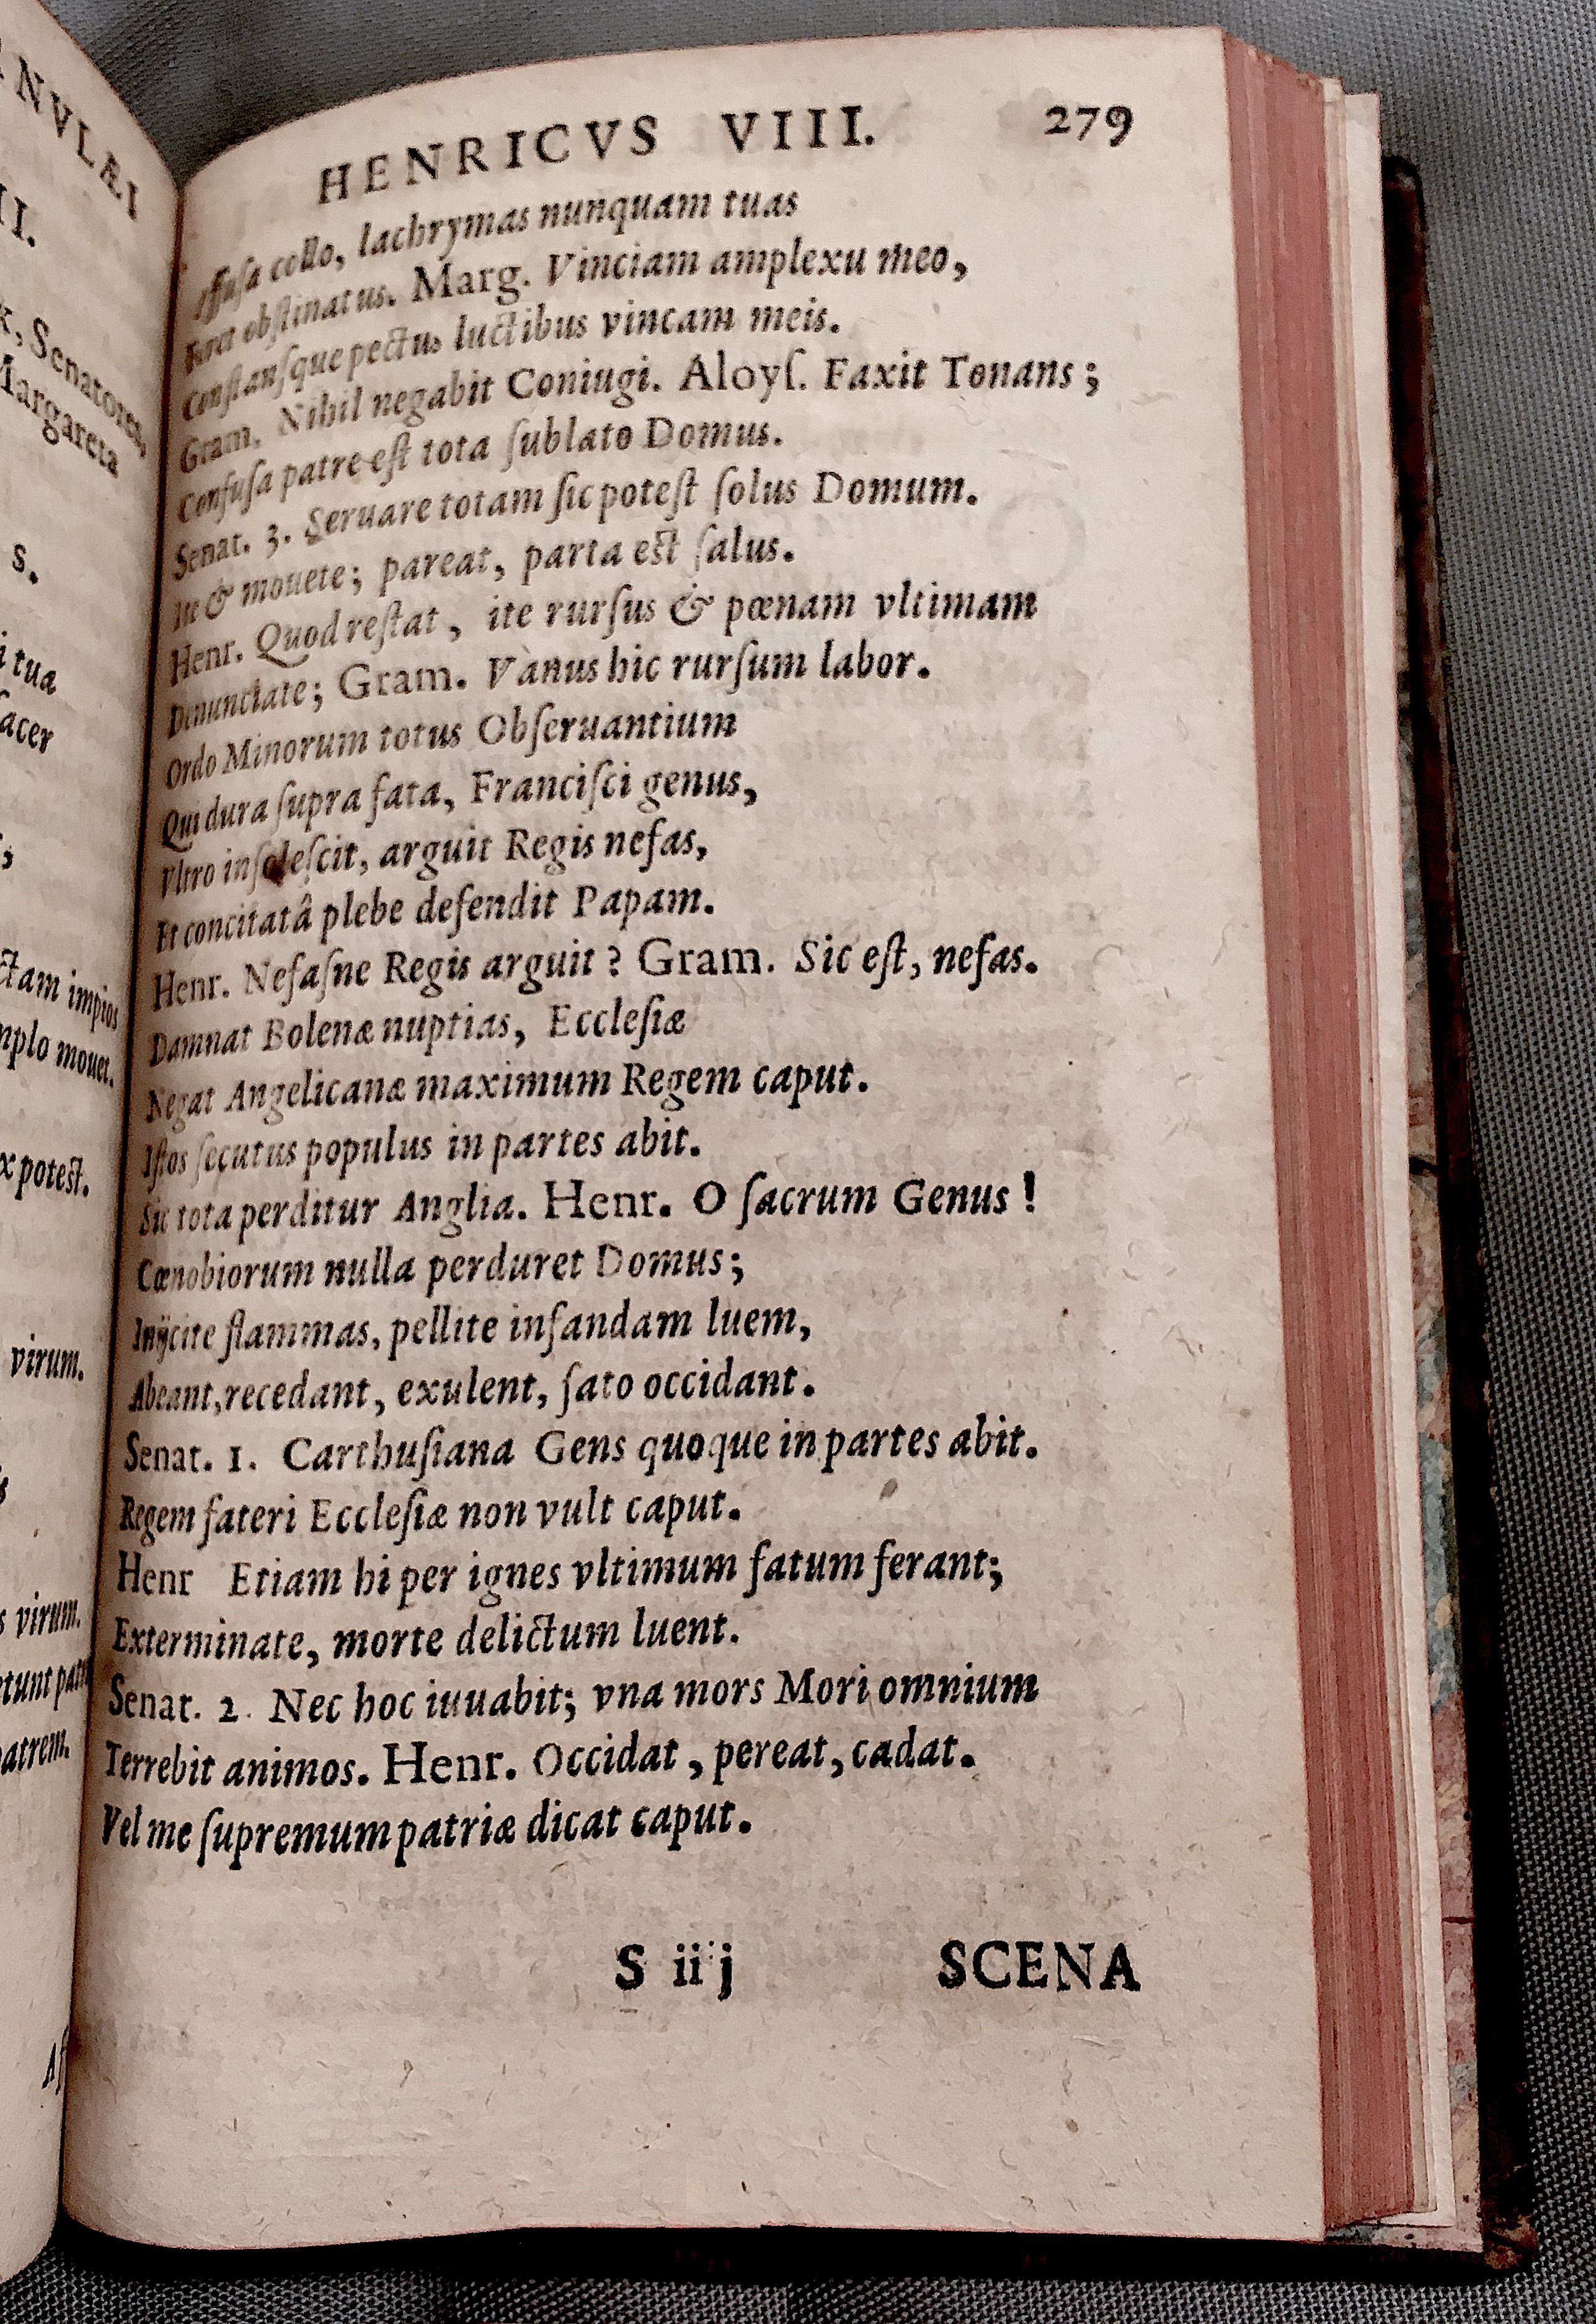 NVLÆI
II.
Senatores,
Margareta
s.
i tua
ſacer
ctam impios
mplo mouet.
x poteſt.
virum.
s virum.
etunt patri
patrem.
HENRICVS VIII. 279
ffuſa collo, lachrymas nunquam tuas
Feret obſtinatus. Marg. Vinciam amplexu meo,
Conſtanſque pectus luctibus vincam meis.
Gram. Nihil negabit Coniugi. Aloyſ. Faxit Tonans;
Confuſa patre eſt tota ſublato Domus.
Senat. 3. Seruare totam ſic poteſt ſolus Domum.
Ite & mouete; pareat, parta eſt ſalus.
Henr. Quod reſtat, ite rurſus & pœnam vltimam
Denunciate; Gram. Vanus hic rurſum labor.
Ordo Minorum totus Obſeruantium
Qui dura ſupra fata, Franciſci genus,
Vltro inſoleſcit, arguit Regis nefas,
Et concitatâ plebe defendit Papam.
Henr. Nefaſne Regis arguit? Gram. Sic eſt, nefas.
Damnat Bolenæ nuptias, Eccleſiæ
Negat Angelicanæ maximum Regem caput.
Iſtos ſecutus populus in partes abit.
Sic tota perditur Anglia. Henr. O ſacrum Genus!
Cœnobiorum nulla perduret Domus;
Inijcite flammas, pellite infandam luem,
Abeant, recedant, exulent, fato occidant.
Senat. 1. Carthuſiana Gens quoque in partes abit.
Regem fateri Eccleſiæ non vult caput.
Henr Etiam hi per ignes vltimum fatum ferant;
Exterminate, morte delictum luent.
Senat. 2. Nec hoc iuuabit; vna mors Mori omnium
Terrebit animos. Henr. Occidat, pereat, cadat.
Vel me ſupremum patriæ dicat caput.
S iij SCENA